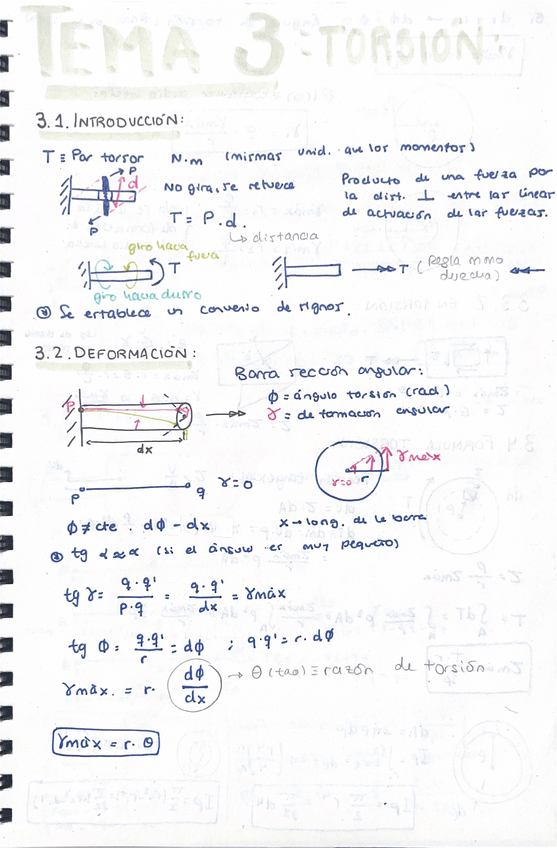 TEMA 3: TORSIÓN:
3.1. INTRODUCCIÓN:
T ≡ Par torsor N.m (mismas unid. que los momentos)
P
d
P
No gira, se retuerce
T = P.d.
↳ distancia
Producto de una fuerza por
la dist. ⊥ entre las líneas
de actuación de las fuerzas.
giro hacia
fuera
T
giro hacia dentro
T (Regla mano
derecha)
Se establece un convenio de signos.
3.2. DEFORMACIÓN:
Barra sección angular:
ϕ = ángulo torsión (rad)
γ = deformación angular
P
q
dx
γmáx
γ=0
r
p q γ=0
ϕ ≠ cte. dϕ - dx x → long. de la barra
tg α ≈ α (si el ángulo es muy pequeño)
tg γ = q·q' / p·q = q·q' / dx = γmáx
tg ϕ = q·q' / r = dϕ ; q·q' = r. dϕ
γmáx. = r. dϕ / dx → θ (tao) ≡ razón de torsión
γmáx = r. θ